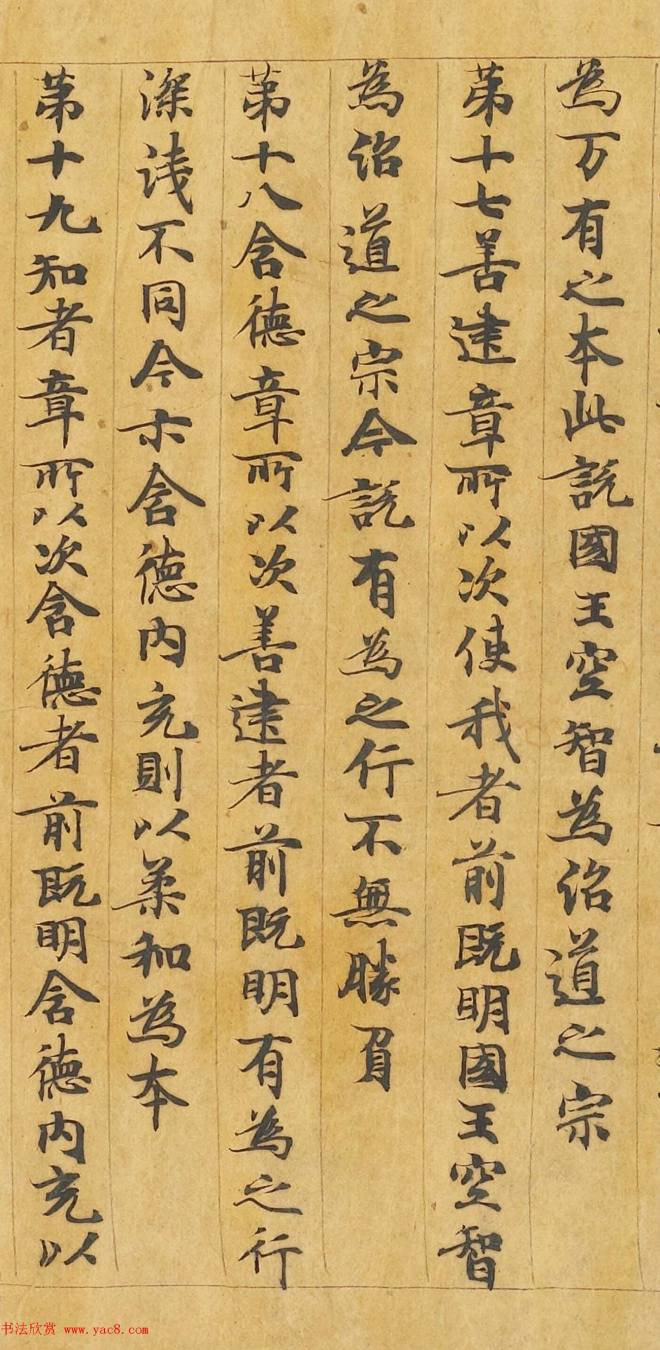 為万有之本此說國王空智為伱道之宗
第十七善建章所以次使我者前既明國王空智
為伱道之宗今說有為之行不無勝負
第十八含德章所以次善建者前既明有為之行
深淺不同今示含德內充則以柔和為本
第十九知者章所以次含德者前既明含德內充以
书法欣赏 www.yac8.com